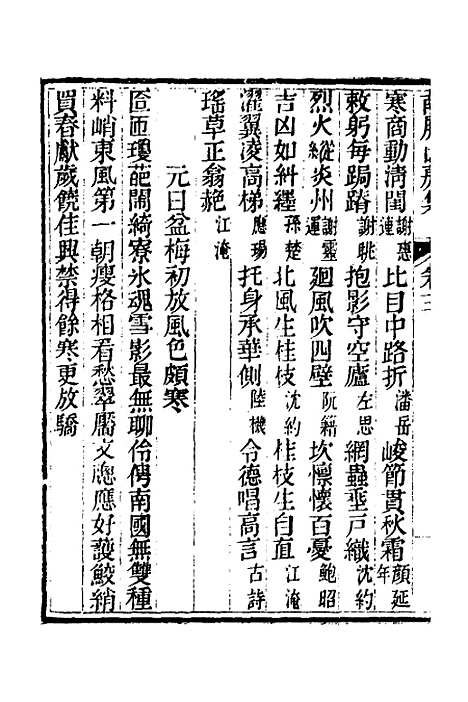 卷三
寒商動清閨謝惠連 比目中路折潘岳 峻節貫秋霜顏延年
敕躬每跼蹐謝眺 抱影守空廬左思 網蟲垂戶織沈約
烈火縱炎州謝靈運 迴風吹四壁阮籍 坎懍懷百憂鮑昭
吉凶如糾纆孫楚 北風生桂枝沈約 桂枝生自直江淹
濯翼凌高梯應瑒 托身承華側陸機 令德唱高言古詩
瑤草正翕赩江淹
元日盆梅初放風色頗寒
匼匝瓊葩鬧綺寮氷魂雪影最無聊伶俜南國無雙種
料峭東風第一朝瘦格相看愁翠羃文牕應好護鮫綃
買春獻歲饒佳興禁得餘寒更放驕